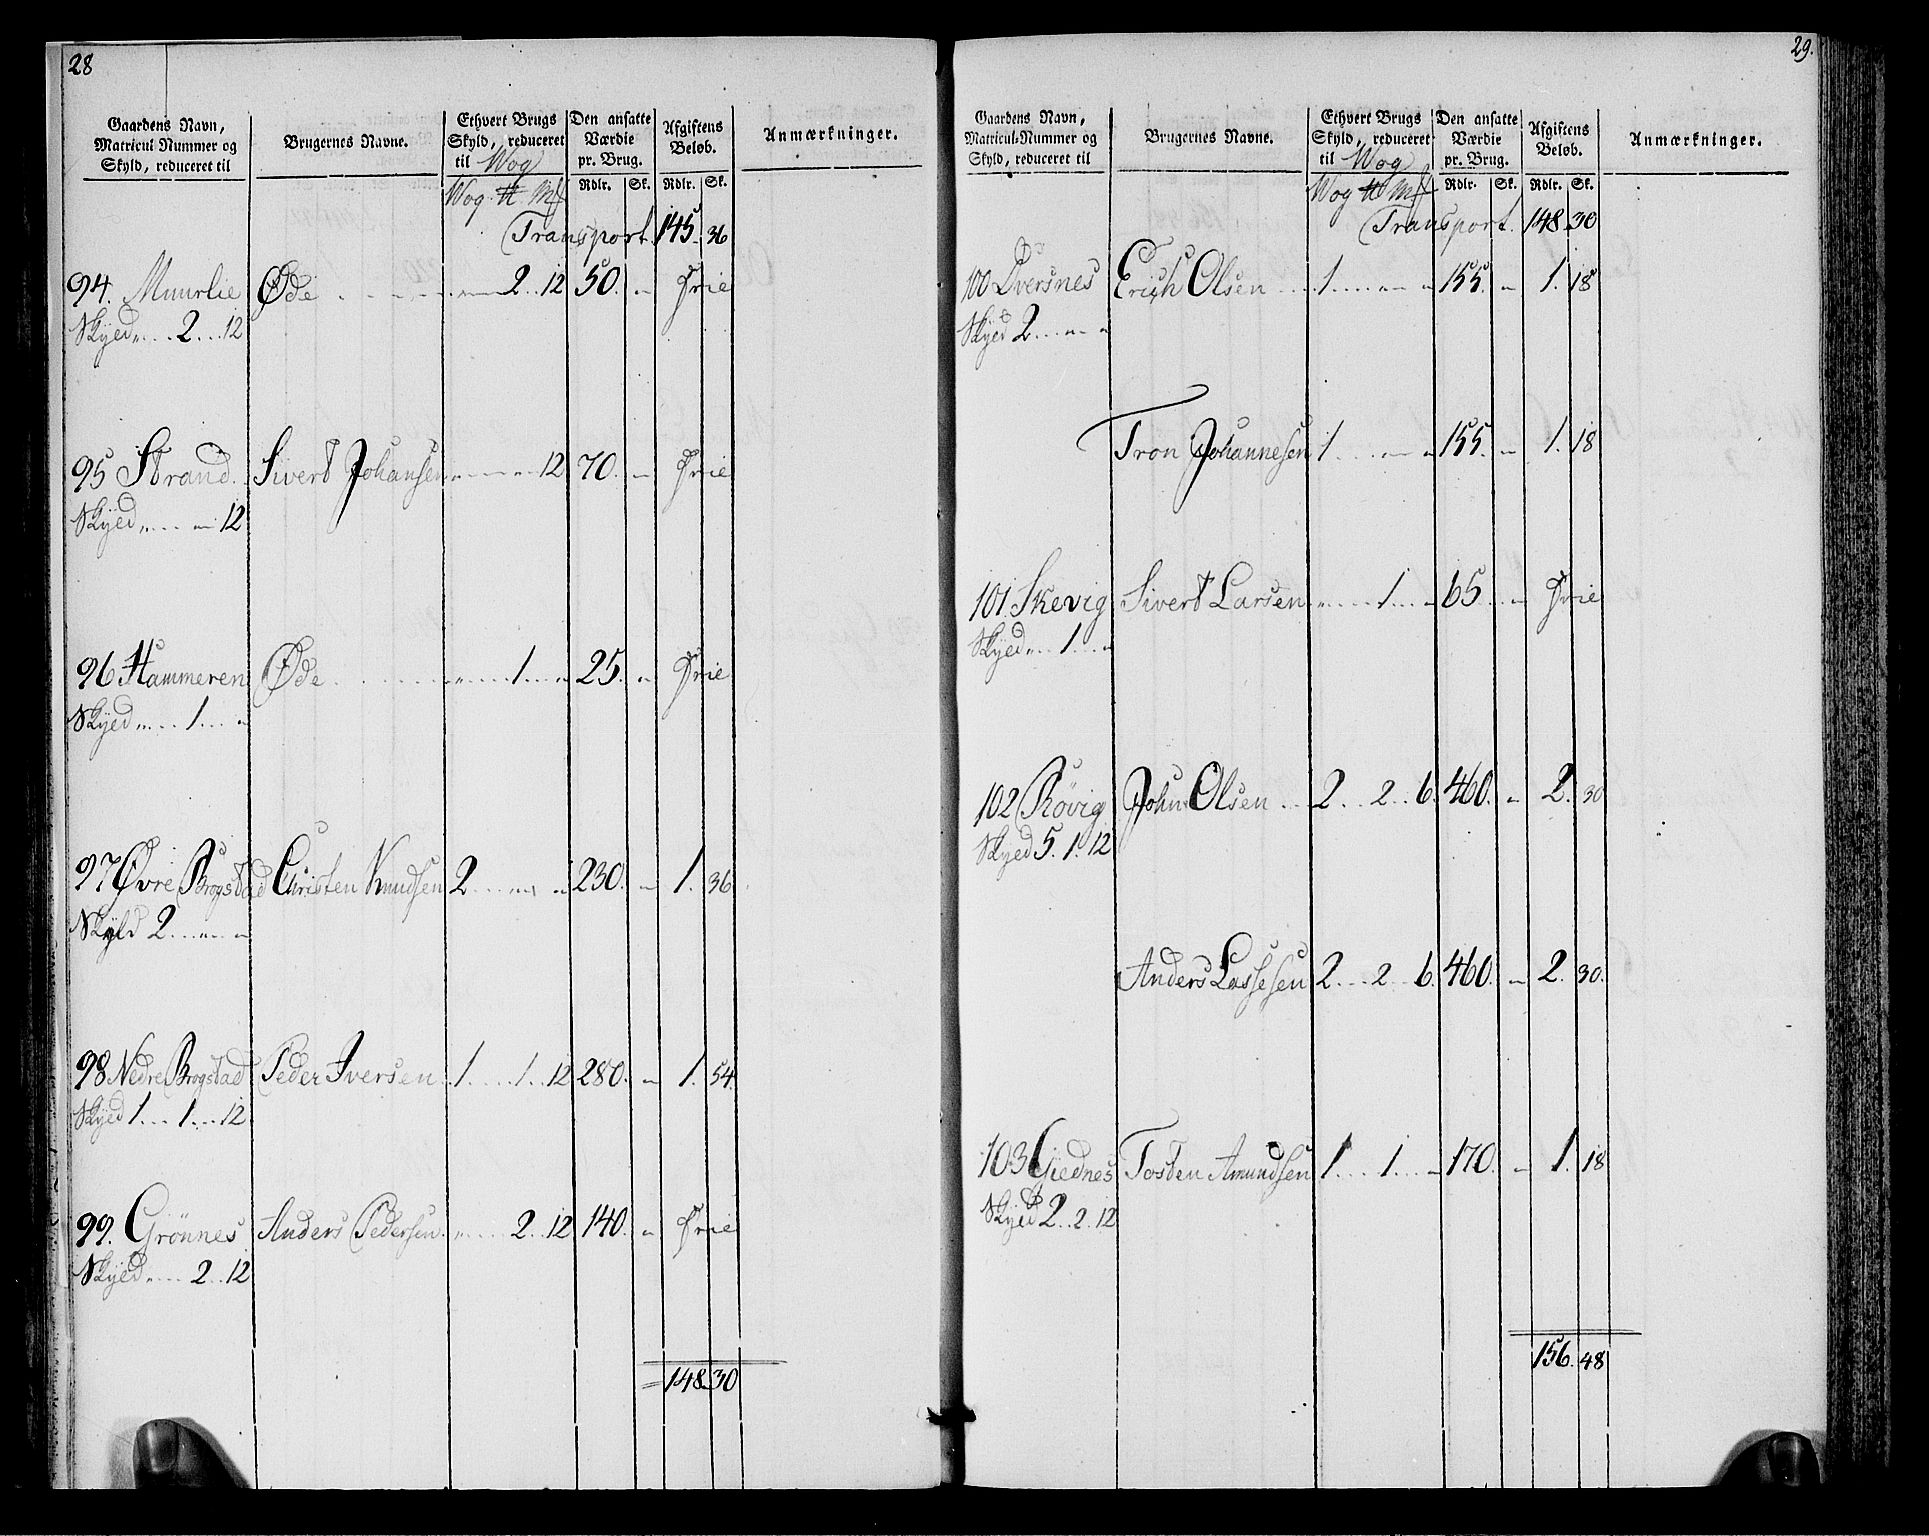 28
Gaardens Navn, Matricul-Nummer og Skyld, reduceret til | Brugernes Navne. | Ethvert Brugs Skyld, reduceret til Wog | Den ansatte Værdie pr. Brug. | Afgiftens Beløb. | Anmærkninger.
Wog ℔ Mk | Rdlr. | Sk. | Rdlr. | Sk.
Transport. 145. 36
94. Muurlie Øde 2 12 50. " Frie
Skyed " 2 12
95 Strand. Sivert Johansen " " 12 70. " Frie
Skyed " " 12
96 Hammeren Øde " 1 " 25. " Frie
Skyed " 1 "
97 Øvre Brogstad Christen Knudsen 2 " " 230. " 1. 36
Skyld 2 " "
98 Nedre Brogstad Peder Iversen 1 1 12 280. " 1. 54.
Skyed 1 1 12
99. Grönnes Anders Pedersen " 2 12 140. " Frie
Skyed " 2 12
148. 30
29.
Gaardens Navn, Matricul-Nummer og Skyld, reduceret til | Brugernes Navne. | Ethvert Brugs Skyld, reduceret til Wog | Den ansatte Værdie pr. Brug. | Afgiftens Beløb. | Anmærkninger.
Wog ℔ Mk | Rdlr. | Sk. | Rdlr. | Sk.
Transport. 148. 30
100 Tversnes Erich Olsen 1 " " 155. " 1. 18
Skyed 2 " "
Tron Johannesen 1 " " 155. " 1. 18
101 Skevig Sivert Larsen " 1 " 65 " Frie
Skyed " 1 "
102 Rövig John Olsen 2 2 6. 460. " 2. 30
Skyed 5. 1. 12
Anders Lassesen 2 2 6. 460. " 2. 30.
103 Giednes Tosten Amundsen 1 1 " 170. " 1. 18
Skyed 2 2 12
156. 48